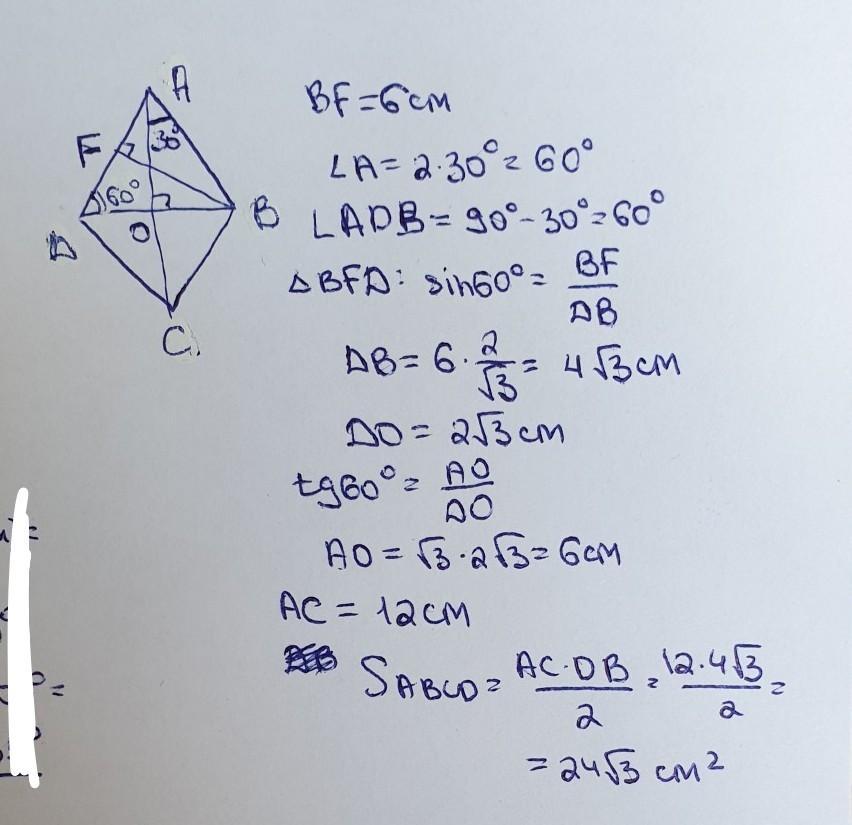 A
F
30°
60°
D
O
B
C.
BF = 6 см
∠A = 2·30° = 60°
∠ADB = 90° - 30° = 60°
△BFD: sin60° = BF/DB
DB = 6 · 2/√3 = 4√3 см
DO = 2√3 см
tg60° = AO/DO
AO = √3 · 2√3 = 6 см
AC = 12 см
S ABCD = AC·DB/2 = 12·4√3/2 =
= 24√3 см²